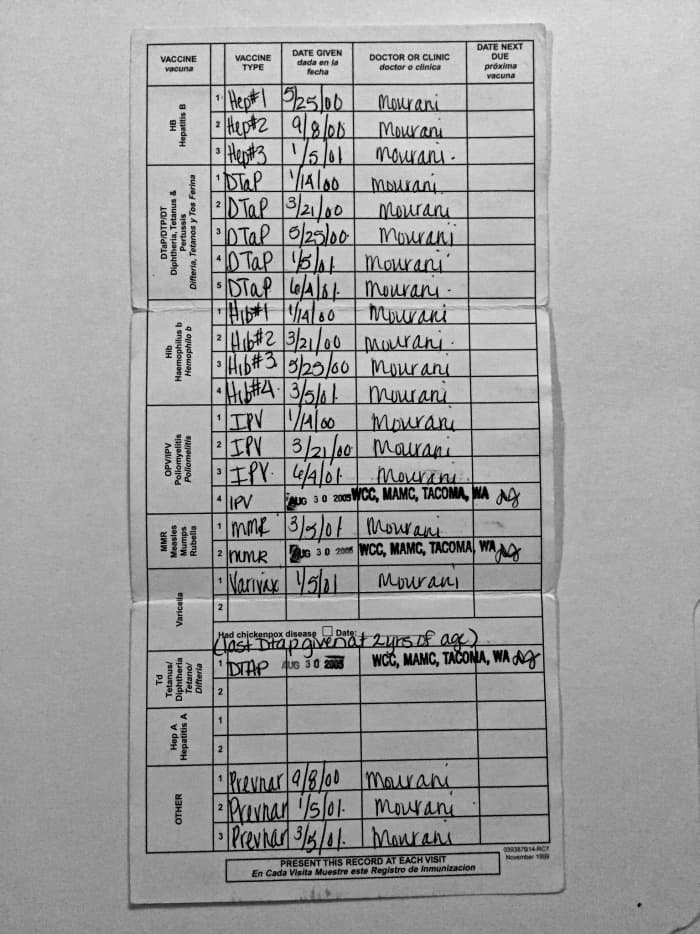 VACCINE vacuna VACCINE TYPE DATE GIVEN dada en la fecha DOCTOR OR CLINIC doctor o clinica DATE NEXT DUE próxima vacuna
HB Hepatitis B
1 Hep#1 5/25/00 Mourani
2 Hep#2 9/8/00 Mourani
3 Hep#3 1/5/01 Mourani.
DTaP/DTP/DT Diphtheria, Tetanus & Pertussis Difteria, Tetanos y Tos Ferina
1 DTaP 1/14/00 Mourani
2 DTaP 3/21/00 Mourani
3 DTaP 5/25/00 Mourani
4 DTaP 1/5/01. Mourani
5 DTaP 6/4/01. Mourani.
Hib Haemophilus b Hemophilo b
1 Hib#1 1/14/00 Mourani
2 Hib#2 3/21/00 Mourani.
3 Hib#3 5/25/00 Mourani
4 Hib#4. 3/5/01. Mourani
OPV/IPV Poliomyelitis Poliomelitis
1 IPV 1/14/00 Mourani
2 IPV 3/21/00 Mourani
3 IPV. 6/4/01. Mourani.
4 IPV AUG 30 2005 WCC, MAMC, TACOMA, WA
MMR Measles Mumps Rubella
1 MMR 3/5/01. Mourani
2 MMR AUG 30 2005 WCC, MAMC, TACOMA, WA
Varicella
1 Varivax 1/5/01 Mourani
2
Had chickenpox disease Date:
(last Dtap given at 2yrs of age)
Td Tetanus/ Diphtheria Tetano/ Difteria
1 DTAP AUG 30 2005 WCC, MAMC, TACOMA, WA
2
Hep A Hepatitis A
1
2
OTHER
1 Prevnar 9/8/00 Mourani
2 Prevnar 1/5/01. Mourani
3 Prevnar 3/5/01. Mourani
PRESENT THIS RECORD AT EACH VISIT
En Cada Visita Muestre este Registro de Inmunizacion
November 1999